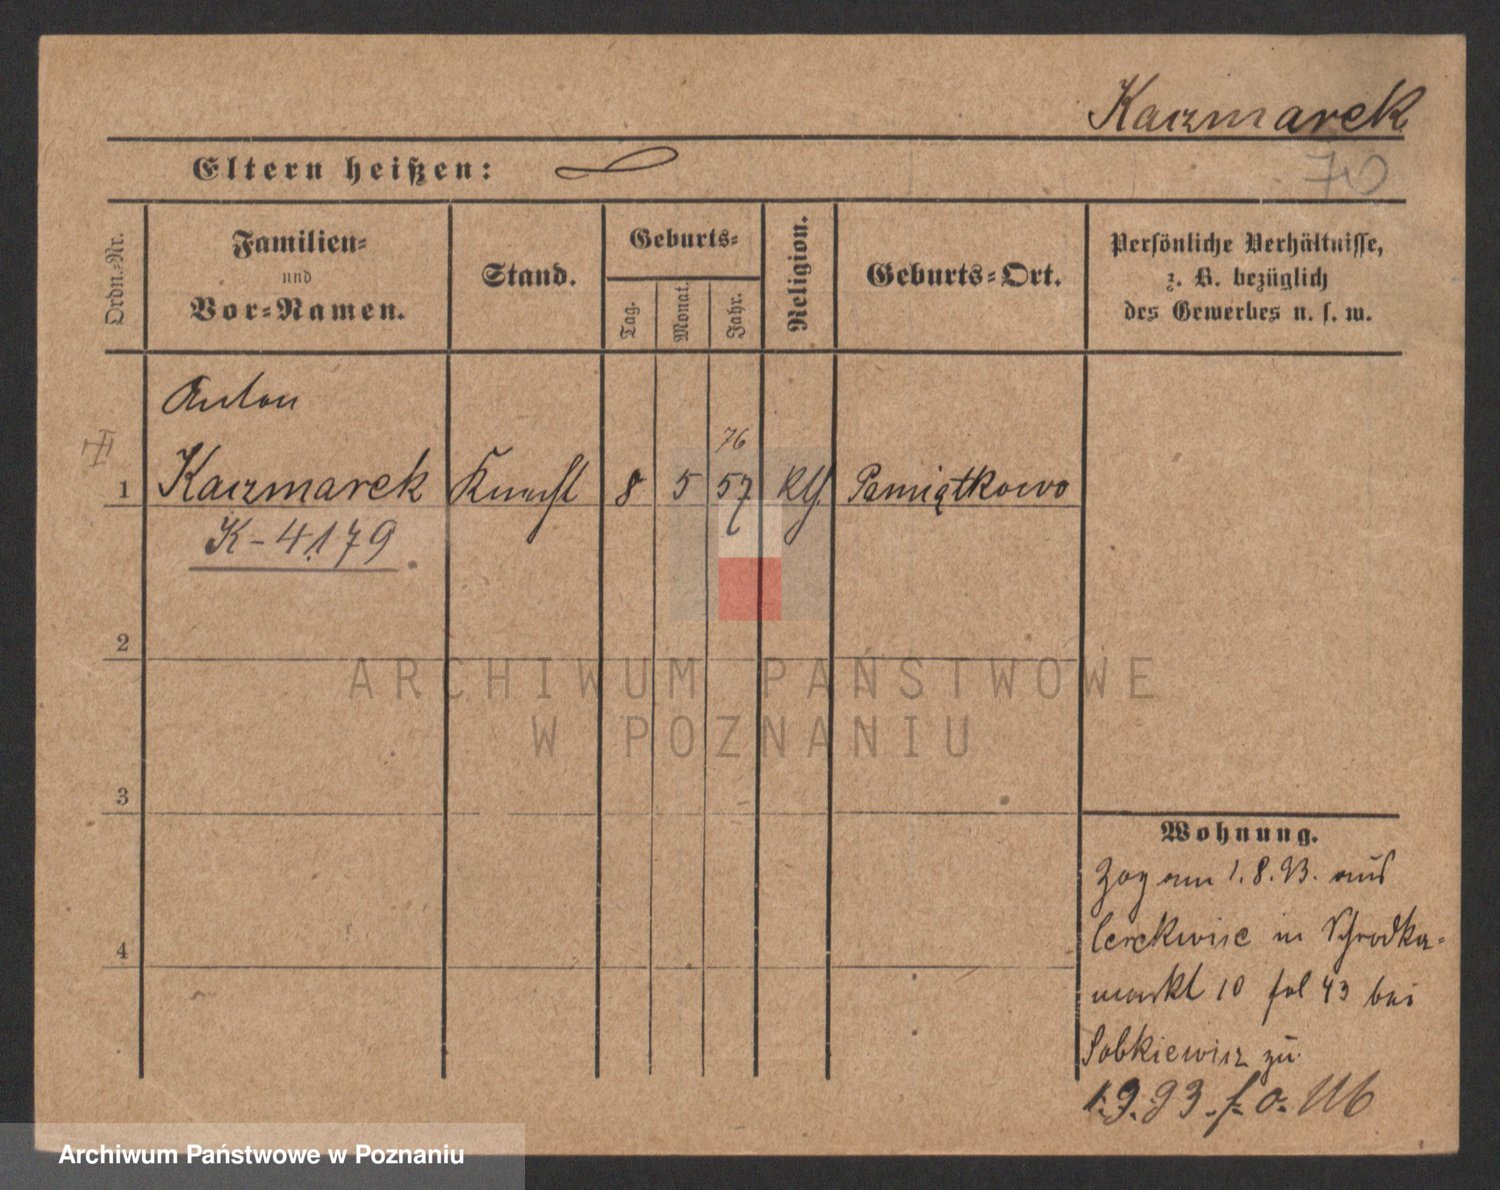 Kaczmarek
Eltern heißen:
70
Ordn.-Nr.
Familien-
und
Vor-Namen.
Stand.
Geburts-
Tag.
Monat.
Jahr.
Religion.
Geburts-Ort.
Persönliche Verhältnisse,
z. B. bezüglich
des Gewerbes u. s. w.
Anton
76
1 Kaczmarek Knecht 8 5 57 Kth. Pamiątkowo
K-4179
2
3
4
Wohnung.
Zog am 1.8.93. aus
in Schrodka-
markt 10 bei
Sobkiewicz zu
1.9.93.
ARCHIWUM PAŃSTWOWE
W POZNANIU
Archiwum Państwowe w Poznaniu